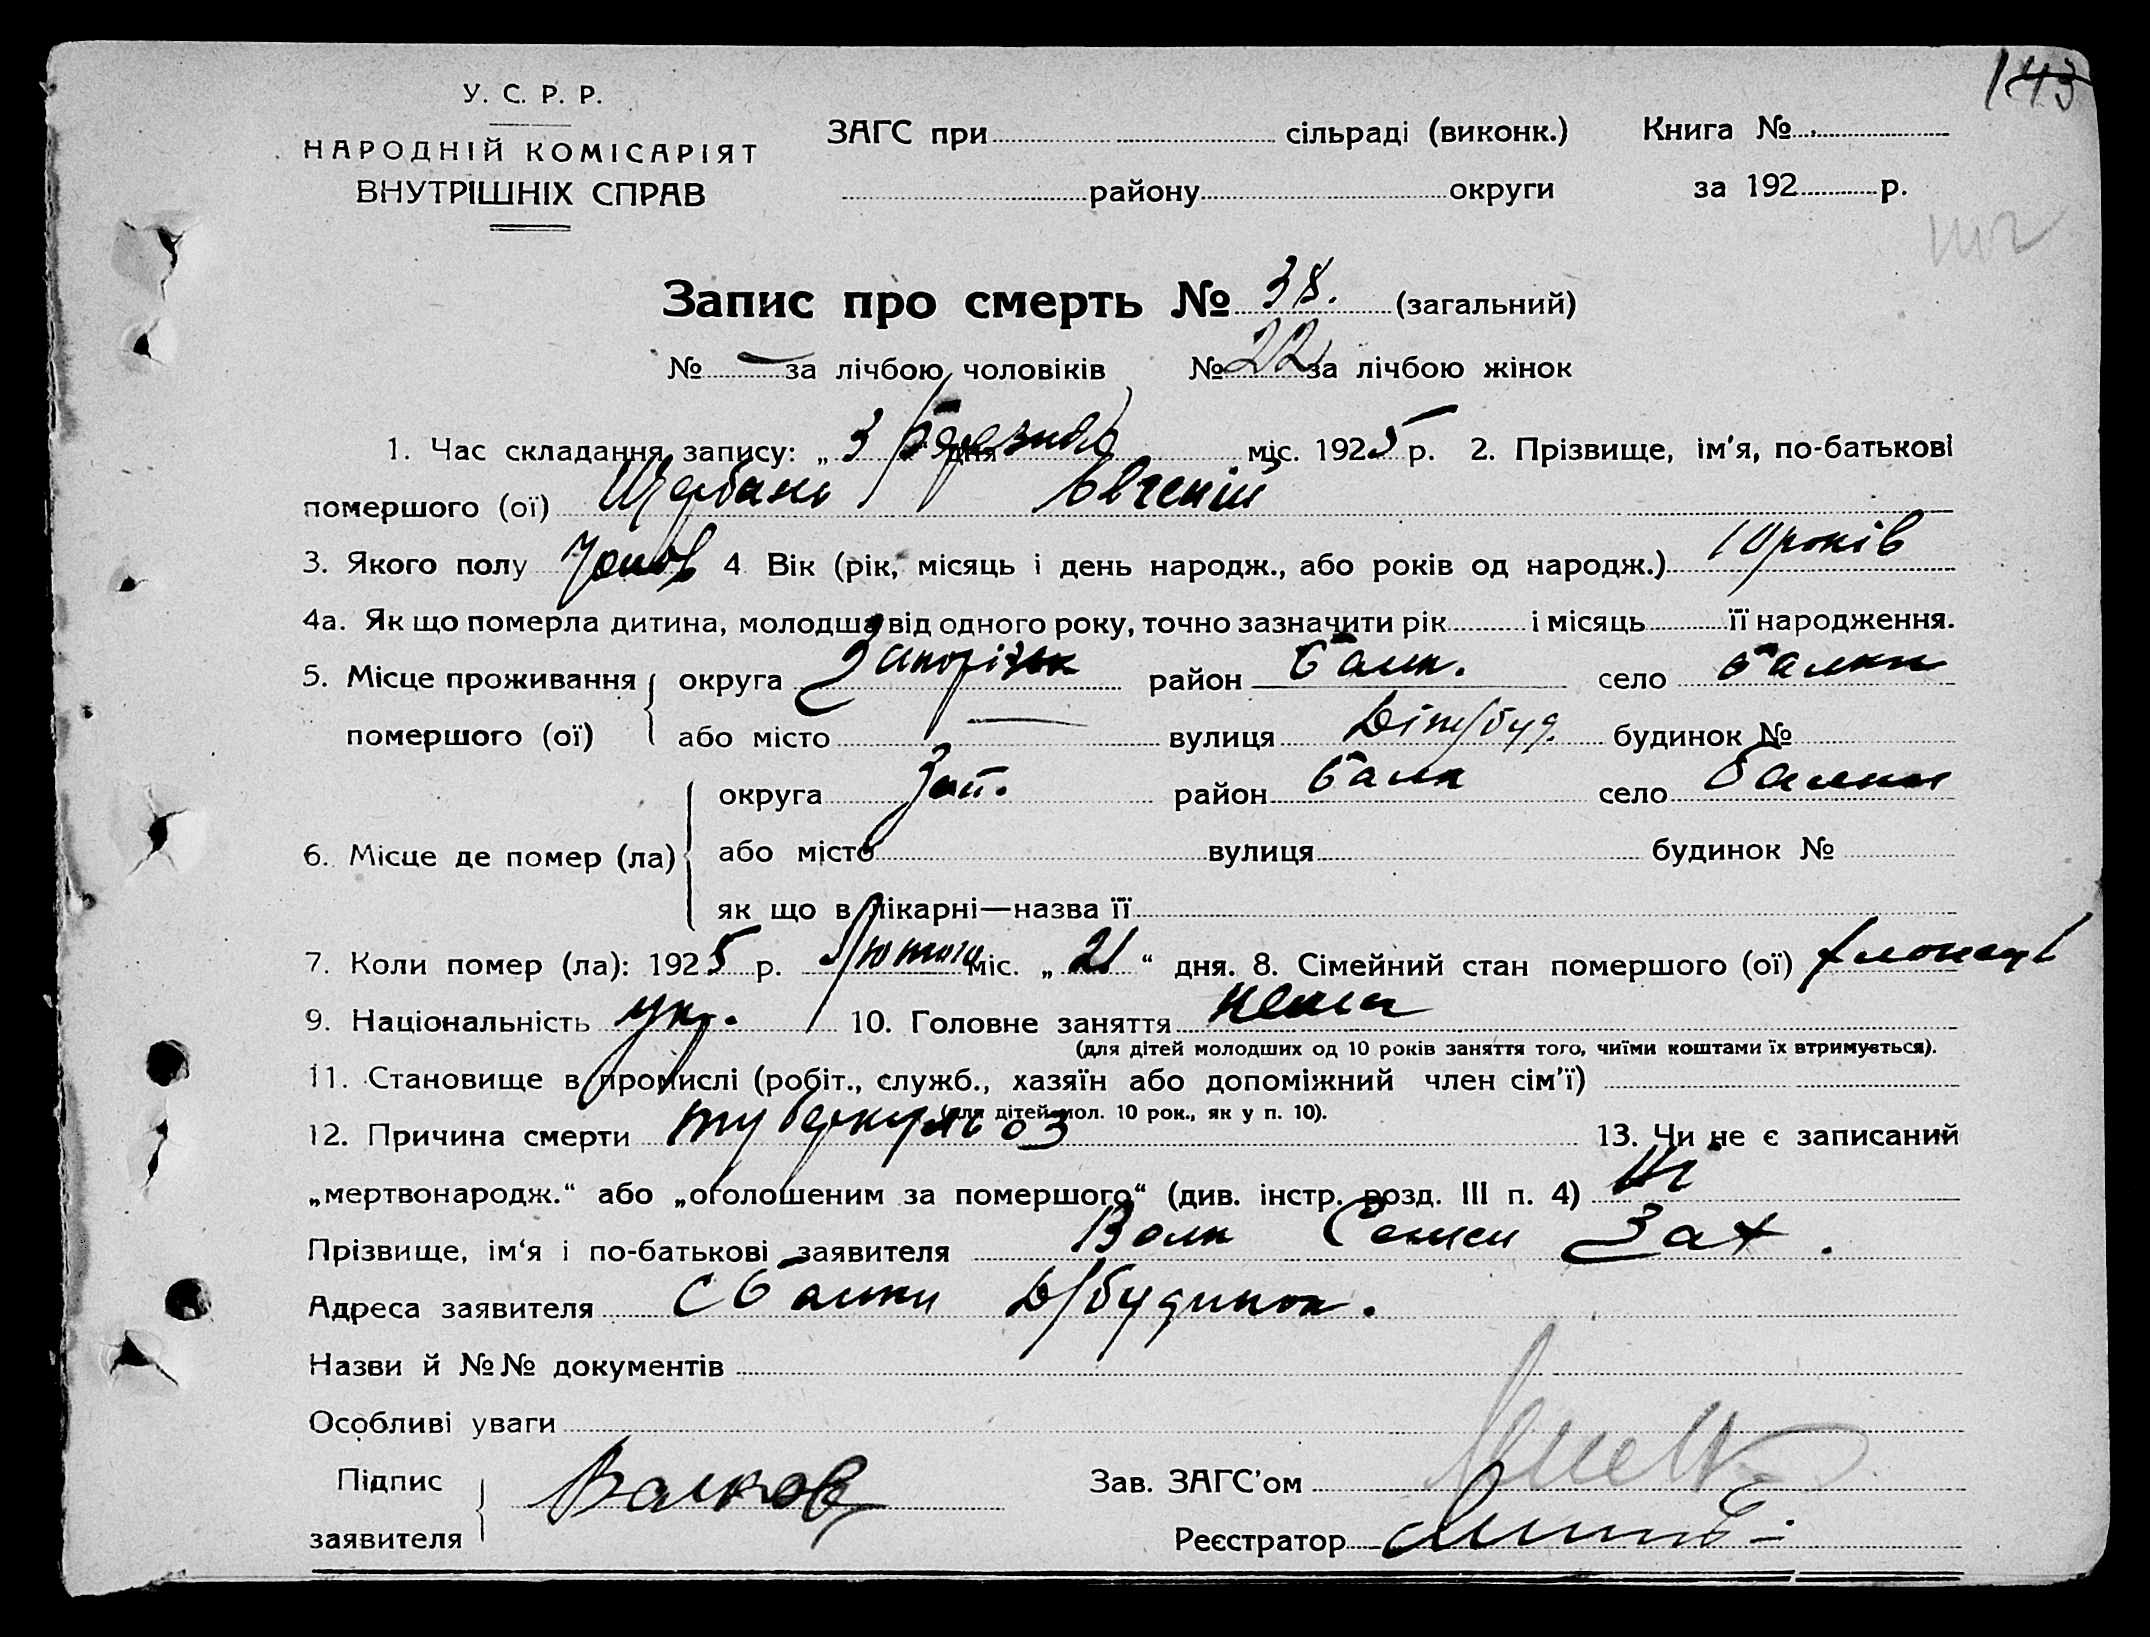 143
У. С. Р. Р.
НАРОДНІЙ КОМІСАРІЯТ
ВНУТРІШНІХ СПРАВ
ЗАГС при сільраді (виконк.) Книга №
району округи за 192 р.
Запис про смерть № 38. (загальний)
№ — за лічбою чоловіків № 22 за лічбою жінок
1. Час складання запису: „ 3 “ дня березня міс. 1925 р. 2. Прізвище, ім'я, по-батькові
помершого (ої) Щербань Євгеній
3. Якого полу 4 Вік (рік, місяць і день народж., або років од народж.) 10 років
4а. Як що померла дитина, молодша від одного року, точно зазначити рік і місяць її народження.
5. Місце проживання помершого (ої) округа Запоріжж район Балк. село Балки
або місто — вулиця будинок №
6. Місце де помер (ла) округа Зап. район Балк село Балки
або місто вулиця будинок №
як що в лікарні—назва її
7. Коли помер (ла): 1925 р. Лютого міс. „ 21 “ дня. 8. Сімейний стан помершого (ої) хлопець
9. Національність укр. 10. Головне заняття нема
(для дітей молодших од 10 років заняття того, чиїми коштами їх втримується).
11. Становище в промислі (робіт., служб., хазяїн або допоміжний член сім'ї)
(для дітей мол. 10 рок., як у п. 10).
12. Причина смерти туберкульоз 13. Чи не є записаний
„мертвонародж.“ або „оголошеним за помершого“ (див. інстр. розд. III п. 4) Ні
Прізвище, ім'я і по-батькові заявителя Волк Семен Зах.
Адреса заявителя с Балки Д/будинок.
Назви й №№ документів
Особливі уваги
Підпис заявителя
Зав. ЗАГС'ом
Реєстратор